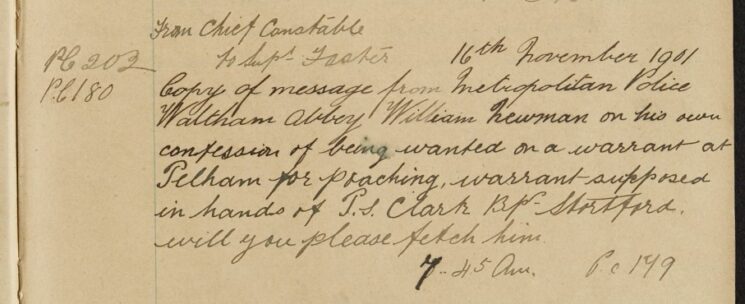 From Chief Constable
PC 202 to Supt. Foster 16th November 1901
P.C 180 Copy of message from Metropolitan Police
Waltham Abbey William Newman on his own
confession of being wanted on a warrant at
Pelham for poaching, warrant supposed
in hands of P.S. Clark Bps. Stortford.
will you please fetch him
7-45 Am. Pc 179